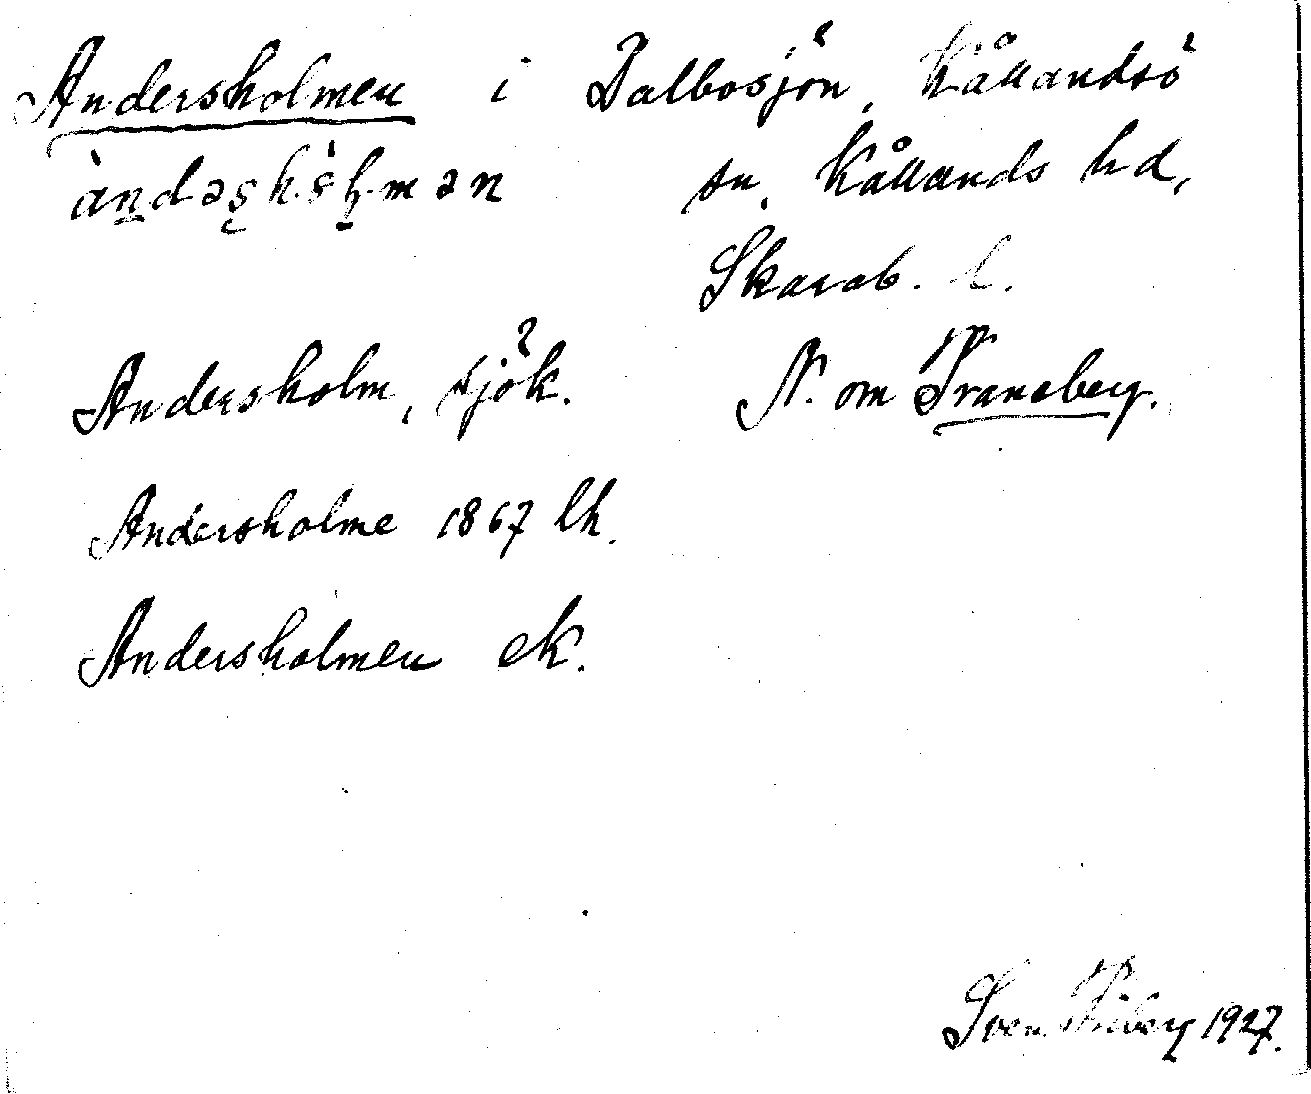 Andersholmen i Dalbosjön, Kållandsö
àndəʂhòl̥mən sn, Kållands hd,
Skarab. l.
Andersholm, sjök. N. om Traneberg.
Andersholme 1867 lh.
Andersholmen ek.
Sven 1927.